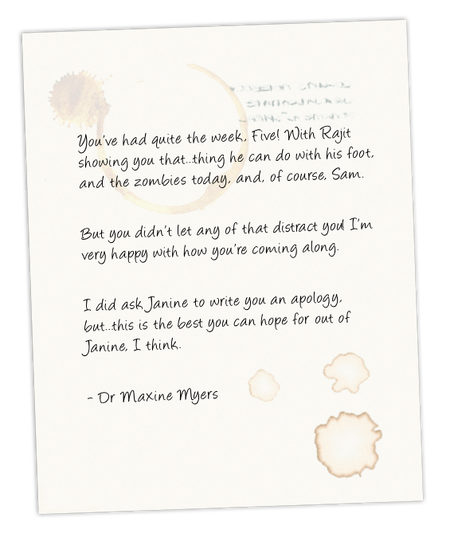 You've had quite the week, Five! With Rajit
showing you that..thing he can do with his foot,
and the zombies today, and, of course, Sam.
But you didn't let any of that distract you! I'm
very happy with how you're coming along.
I did ask Janine to write you an apology,
but..this is the best you can hope for out of
Janine, I think.
- Dr Maxine Myers